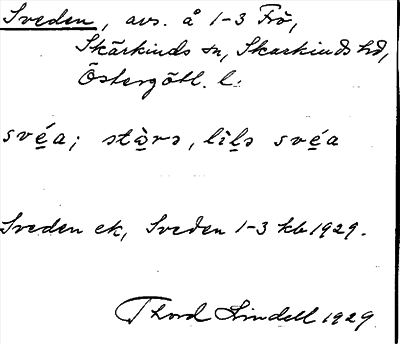 Sveden, avs. å 1-3 Frö,
Skärkinds sn, Skärkinds hd,
Östergötl. l.
svéa; stòrə, lìlə svéa
Sveden ek, Sveden 1-3 kb 1929.
Thord Lindell 1929